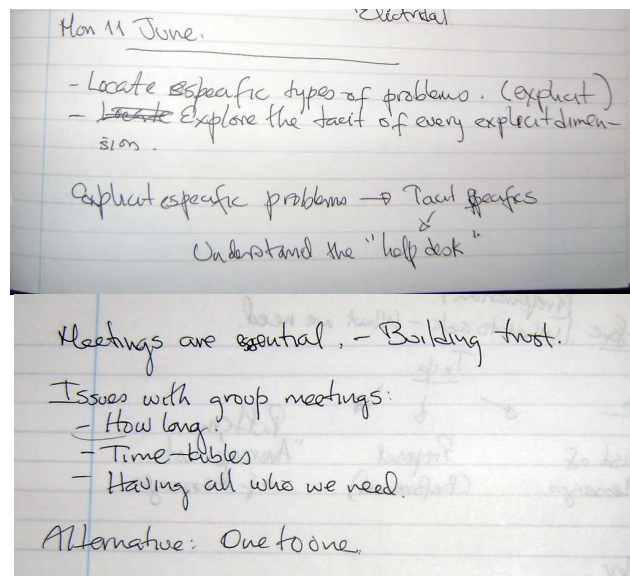 Electridal
Mon 11 June.
- Locate especific types of problems. (explicit)
- Locate Explore the tacit of every explicit dimen-
sion.
Explicit especific problems → Tacit specifics
Understand the "help desk"
Meetings are essential. - Building trust.
Issues with group meetings:
- How long.
- Time-tables
- Having all who we need.
Alternative: One to one.